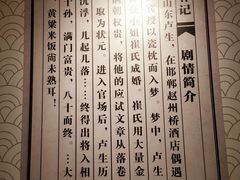 记
剧情简介
山东卢生，在邯郸赵州桥酒店偶遇
授以瓷枕而入梦。梦中，卢生
小姐崔氏成婚，崔氏用大量金
朝权贵，将他的应试文章从落卷
取为状元。进入官场后，卢生历
沉浮，几起几落……终得出将入相
孙，满门富贵，八十而终。…大
黄粱米饭尚未熟耳！